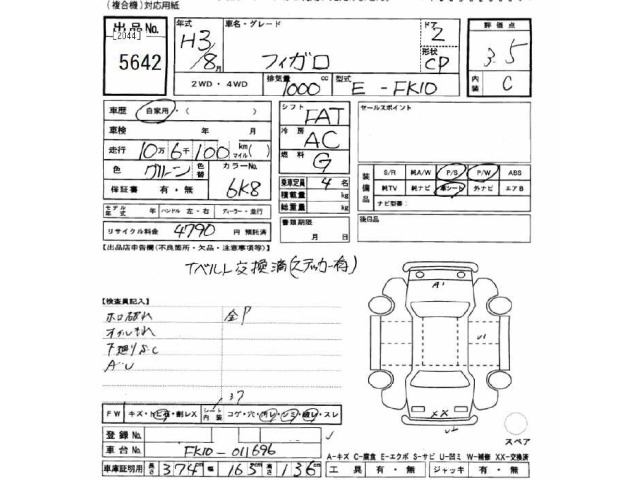 (複合機)対応用紙
出品No. [2044] 5642
年式 H3/8月
車名・グレード フィガロ
ドア 2
形状 CP
評価点 3.5
内装 C
2WD・4WD
排気量 1000 cc
型式 E-FK10
車歴 自家用・( )
車検 年 月
走行 10万6千100 km(マイル)
色 グリーン 色替
カラーNo. 6K8
保証書 有・無
シフト FAT
冷房 AC
燃料 G
乗車定員 4 名
積載量 kg
総重量 kg
セールスポイント
装備品 S/R 純A/W P/S P/W ABS
純TV 純ナビ 革シート 外ナビ エアB
ナビ型番:
モデル年式 年 ハンドル 左・右 ディーラー・並行
リサイクル料金 4790 円 預託済
書類期限 月 日
後日品
【出品店申告欄(不良箇所・欠品・注意事項等)】
Tベルト交換済(ステッカー有)
【検査員記入】
ホロ破れ 金P
オイルもれ
下廻りS・C
A・U
37
FW キズ・ヒビ・削レX
シート内装 コゲ・穴・汚レ・シミ・破レ・スレ
登録No.
車台No. FK10-011696
車庫証明用 長さ 374 cm 幅 163 cm 高さ 136 cm
A1
U1
XX
スペア
A-キズ C-腐食 E-エクボ S-サビ U-凹ミ W-補修 XX-交換済
工具 有・無 ジャッキ 有・無